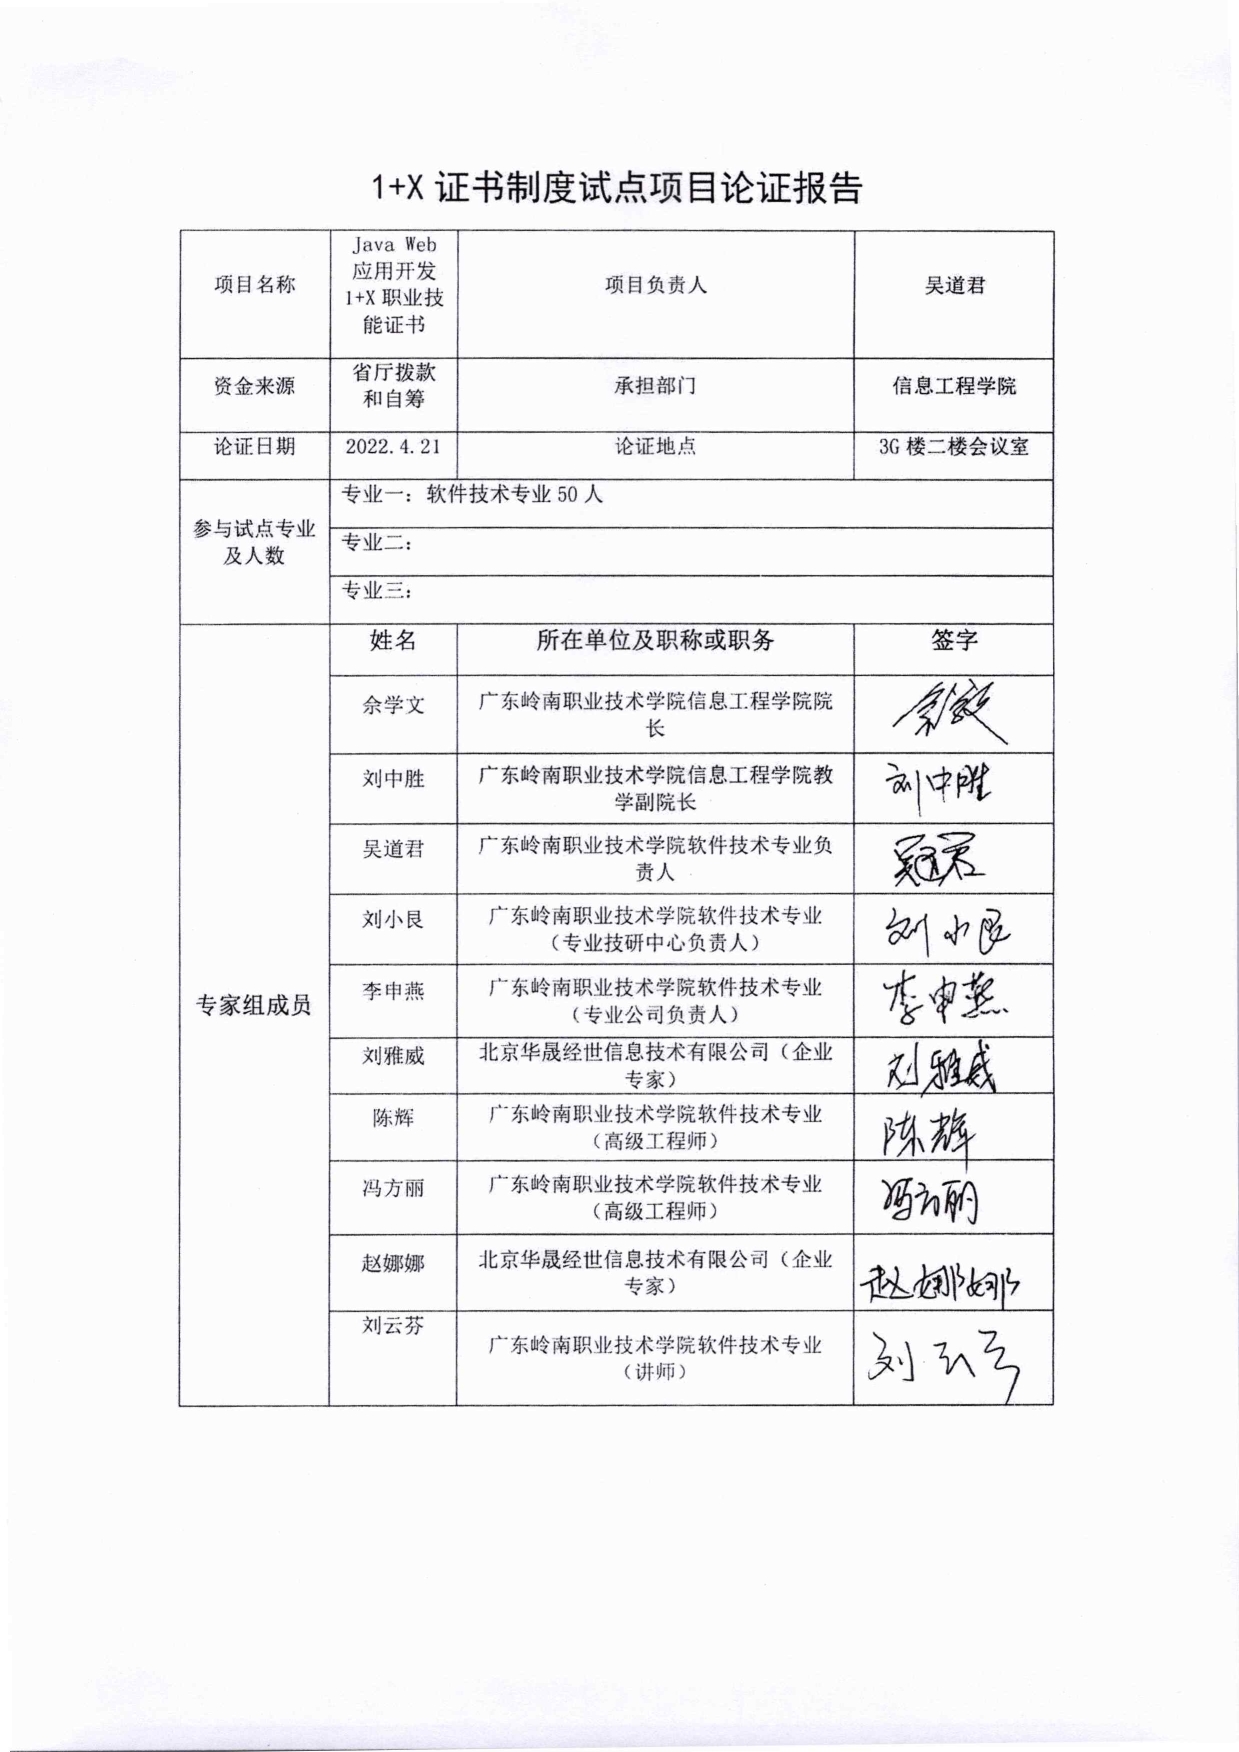 1+X 证书制度试点项目论证报告
项目名称
Java Web
应用开发
1+X 职业技
能证书
项目负责人
吴道君
资金来源
省厅拨款
和自筹
承担部门
信息工程学院
论证日期
2022.4.21
论证地点
3G 楼二楼会议室
参与试点专业
及人数
专业一：软件技术专业 50 人
专业二：
专业三：
专家组成员
姓名
所在单位及职称或职务
签字
佘学文
广东岭南职业技术学院信息工程学院院
长
刘中胜
广东岭南职业技术学院信息工程学院教
学副院长
刘中胜
吴道君
广东岭南职业技术学院软件技术专业负
责人
吴道君
刘小良
广东岭南职业技术学院软件技术专业
（专业技研中心负责人）
刘小良
李申燕
广东岭南职业技术学院软件技术专业
（专业公司负责人）
李申燕
刘雅威
北京华晟经世信息技术有限公司（企业
专家）
刘雅威
陈辉
广东岭南职业技术学院软件技术专业
（高级工程师）
陈辉
冯方丽
广东岭南职业技术学院软件技术专业
（高级工程师）
冯方丽
赵娜娜
北京华晟经世信息技术有限公司（企业
专家）
赵娜娜
刘云芬
广东岭南职业技术学院软件技术专业
（讲师）
刘云芬